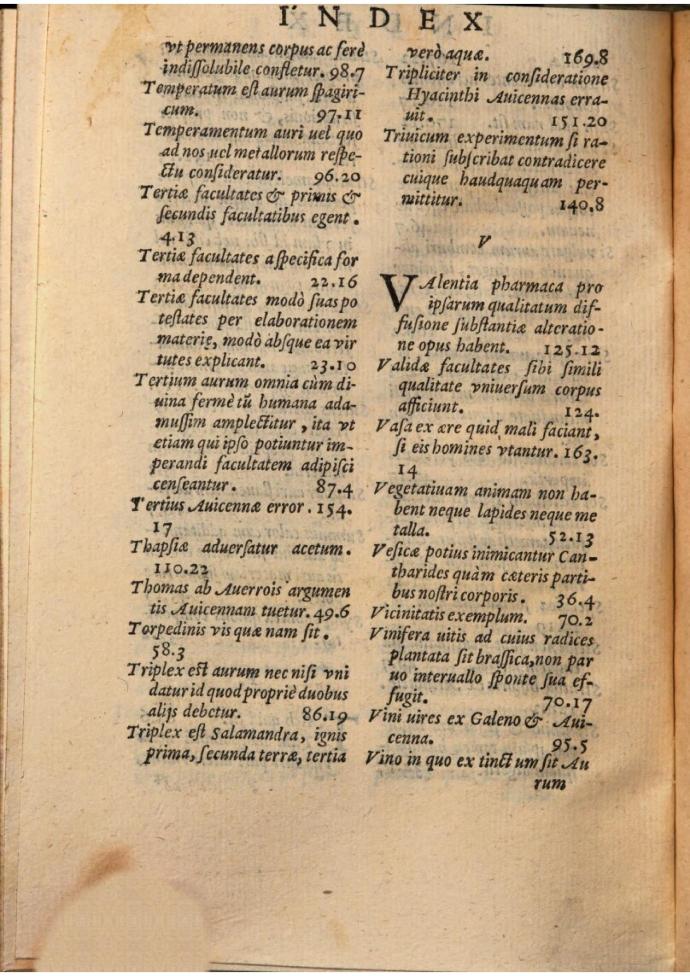 INDEX
vt permanens corpus ac ferè
indiſſolubile confletur. 98.7
Temperatum eſt aurum ſpagiri-
cum. 97.11
Temperamentum auri uel quo
ad nos uel metallorum reſpe-
ctu conſideratur. 96.20
Tertiæ facultates & primis &
ſecundis facultatibus egent.
4.13
Tertiæ facultates a ſpecifica for
ma dependent. 22.16
Tertiæ facultates modò ſuas po
teſtates per elaborationem
materię, modò abſque ea vir
tutes explicant. 23.10
Tertium aurum omnia cùm di-
uina fermè tū humana ada-
muſſim amplectitur, ita vt
etiam qui ipſo potiuntur im-
perandi facultatem adipiſci
cenſeantur. 87.4
Tertius Auicennæ error. 154.
17
Thapſiæ aduerſatur acetum.
110.22
Thomas ab Auerrois argumen
tis Auicennam tuetur. 49.6
Torpedinis vis quæ nam ſit.
58.3
Triplex eſt aurum nec niſi vni
datur id quod propriè duobus
alijs debetur. 86.19
Triplex eſt Salamandra, ignis
prima, ſecunda terræ, tertia
verò aquæ. 169.8
Tripliciter in conſideratione
Hyacinthi Auicennas erra-
uit. 151.20
Triuicum experimentum ſi ra-
tioni ſubſcribat contradicere
cuique haudquaquam per-
mittitur. 140.8
V
VAlentia pharmaca pro
ipſarum qualitatum dif-
fuſione ſubſtantiæ alteratio-
ne opus habent. 125.12
Validæ facultates ſibi ſimili
qualitate vniuerſum corpus
afficiunt. 124.
Vaſa ex ære quid mali faciant,
ſi eis homines vtantur. 163.
14
Vegetatiuam animam non ha-
bent neque lapides neque me
talla. 52.13
Veſicæ potius inimicantur Can-
tharides quàm cæteris parti-
bus noſtri corporis. 36.4
Vicinitatis exemplum. 70.2
Vinifera uitis ad cuius radices
plantata ſit braſſica, non par
uo interuallo ſponte ſua ef-
fugit. 70.17
Vini uires ex Galeno & Aui-
cenna. 95.5
Vino in quo ex tinctum ſit Au
rum